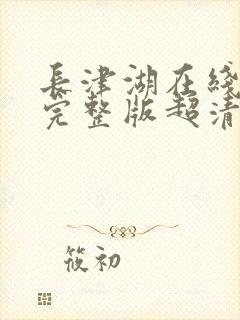 長津湖在綫
完整版超清
筱初